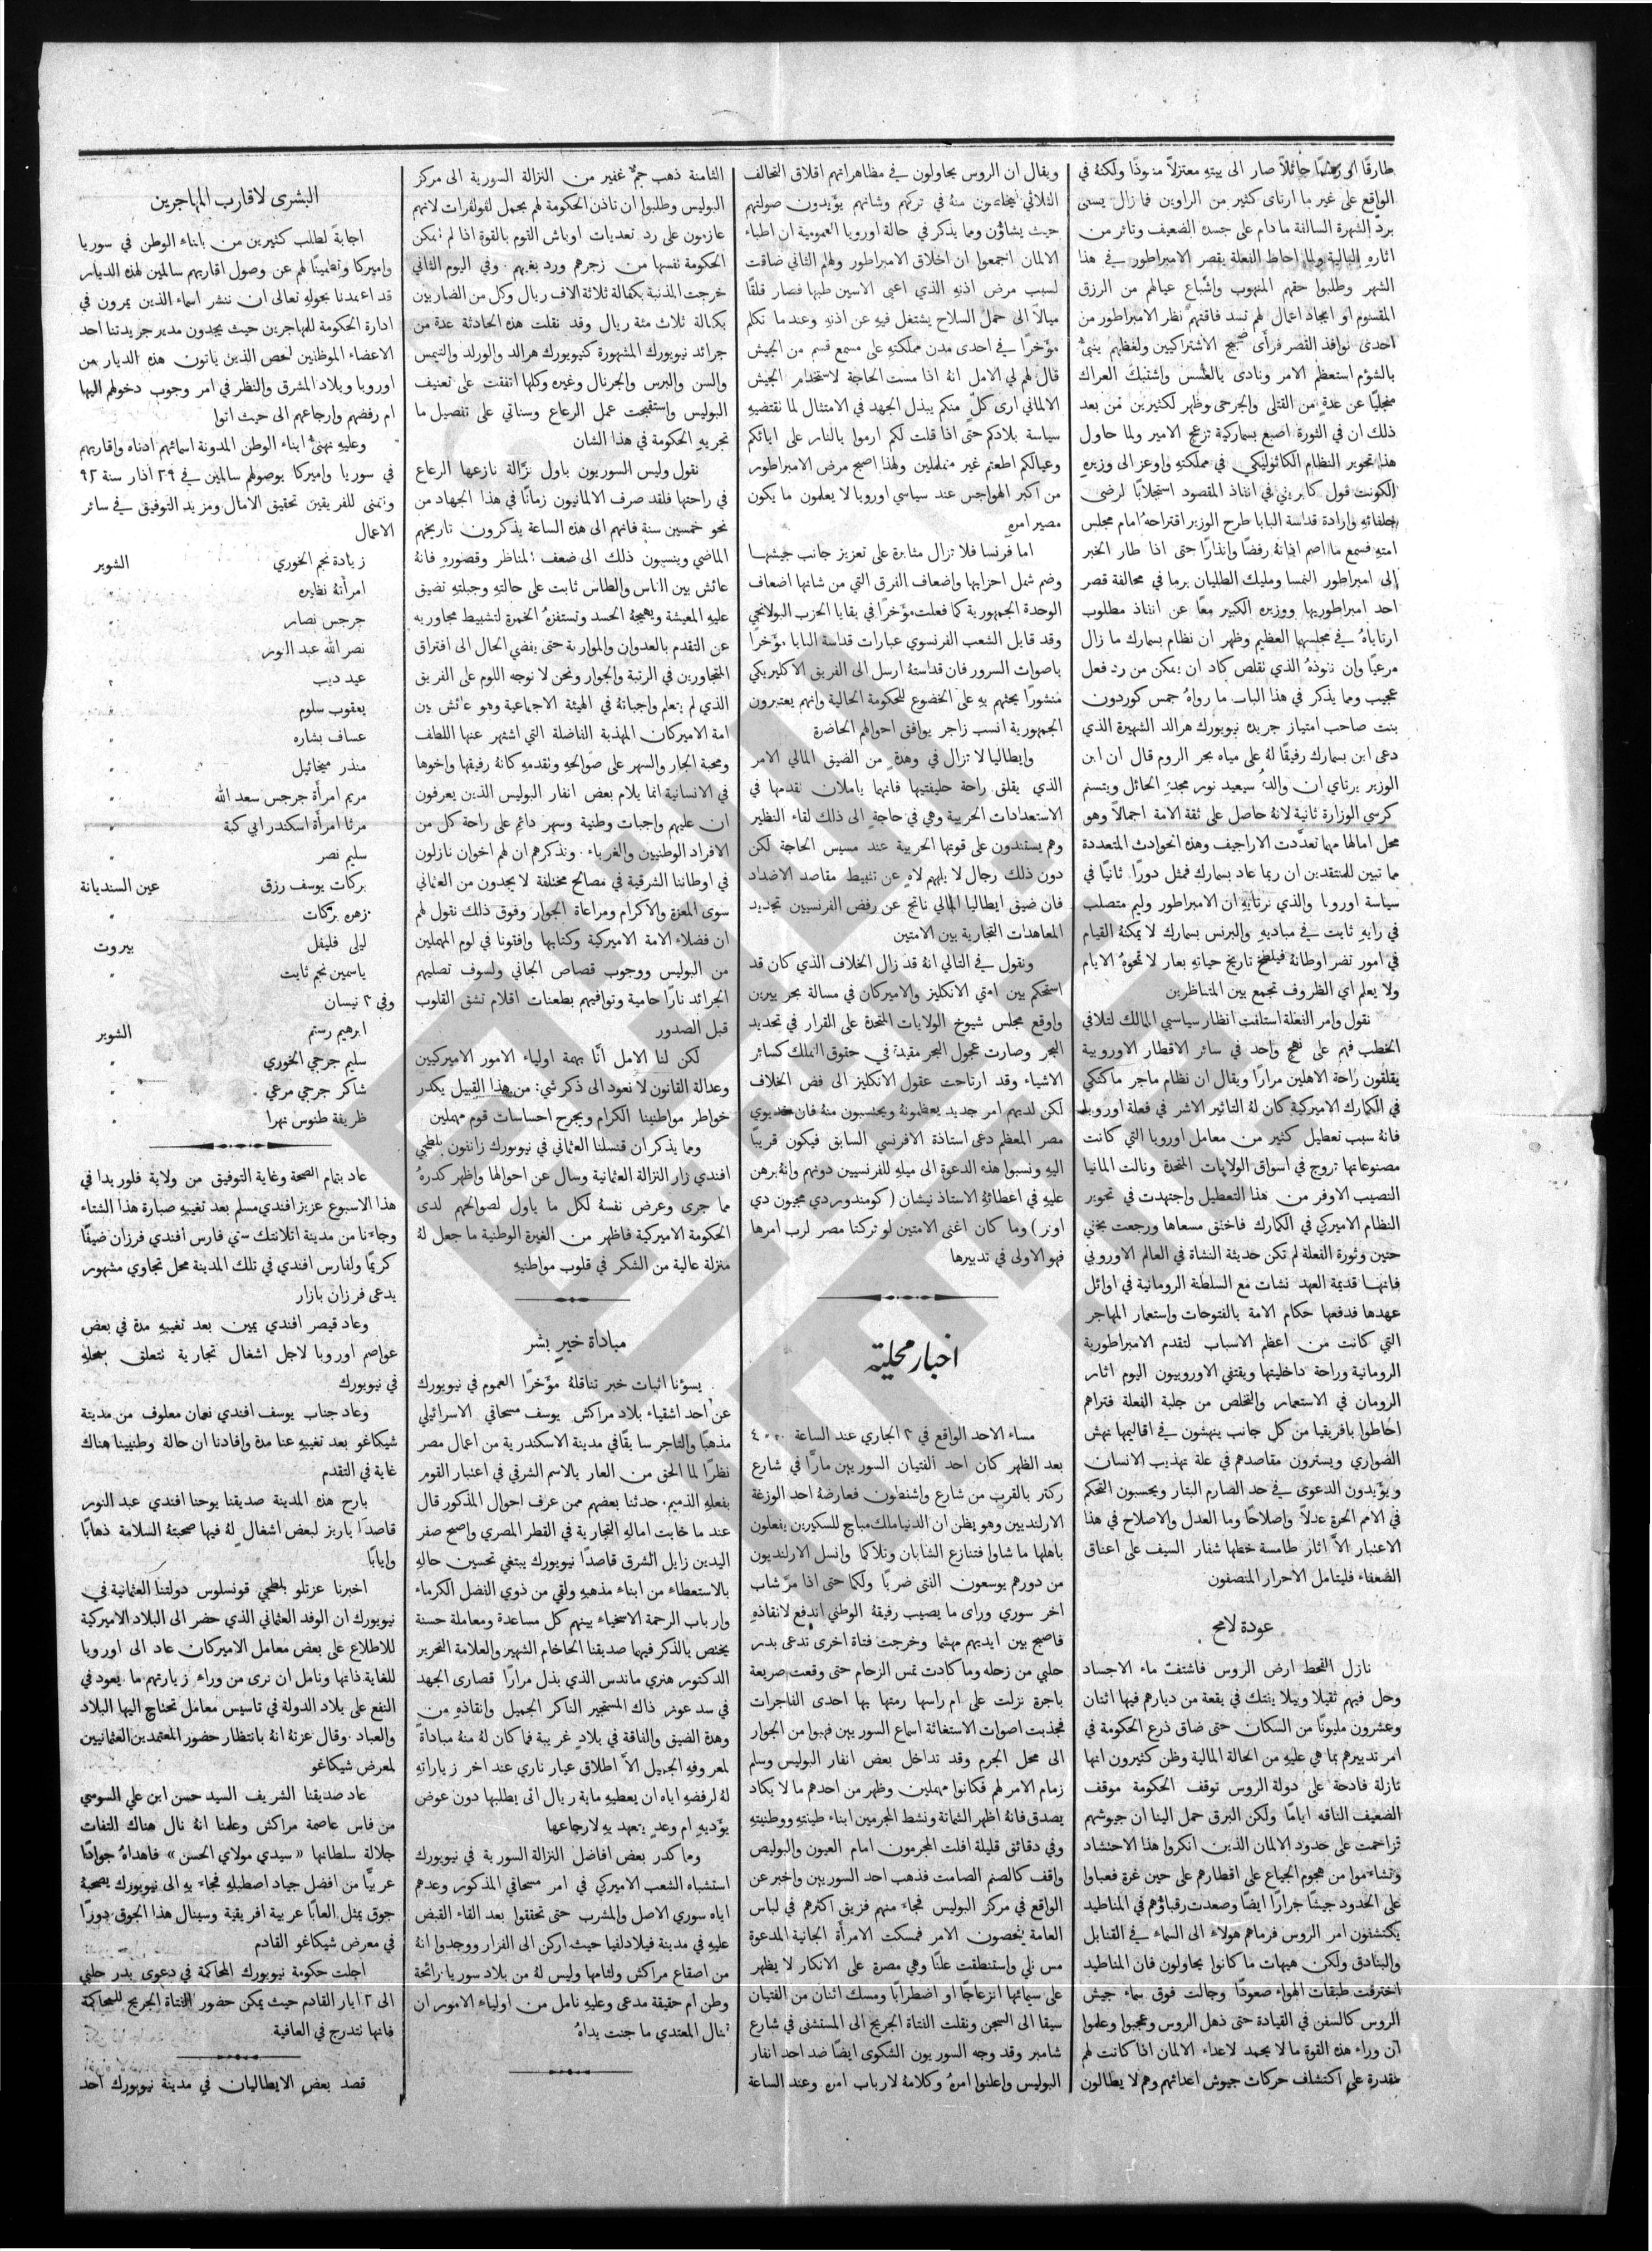 الواقع على غير ما ارتاى كثير من الراوين فما زال يسعى
بردّ الشهرة السالفة ما دام على جسده الضعيف وتأثر من
اثاره البالية ولما احاط الفعلة بقصر الامبراطور في هذا
الشهر وطلبوا حقهم المنهوب واشباع عيالهم من الرزق
المقسوم او ايجاد اعمال لهم تسد فاقتهم نظر الامبراطور من
احدى نوافذ القصر فرأى ضجيج الاشتراكيين ولغطهم ينبئ
بالشؤم استعظم الامر ونادى بالعسس واشتبك العراك
منجليًا عن عدةٍ من القتلى والجرحى وظهر لكثيرين من بعد
ذلك ان في الثورة اصبع بسماركية تزعج الامير ولما حاول
هذا تحوير النظام الكاثوليكي في مملكتهِ واوعز الى وزيره
الكونت فون كابريني في انفاذ المقصود استجلابًا لرضى
حلفائهِ وارادة قداسة البابا طرح الوزير اقتراحهُ امام مجلس
امته فسمع ما اصم اذانهُ رفضًا وانذارًا حتى اذا طار الخبر
إلى امبراطور النمسا ومليك الطليان برما في محالفة قصر
احد امبراطوريها ووزيره الكبير معًا عن انفاذ مطلوب
ارتاياهُ في مجلسها العظيم وظهر ان نظام بسمارك ما زال
مرعيًا وان نفوذهُ الذي تقلص كاد ان يمكن من رد فعل
عجيب ومما يذكر في هذا الباب ما رواهُ جمس كوردون
بنت صاحب امتياز جريدة نيويورك هرالد الشهيرة الذي
دعى ابن بسمارك رفيقًا لهُ على مياه بحر الروم قال ان ابن
الوزير يرتاي ان والدهُ سيعيد نور مجدهِ الحائل ويتسنم
كرسي الوزارة ثانية لانهُ حاصل على ثقة الامة اجمالاً وهو
محل امالها مهما تعدّدت الاراجيف وهذه الحوادث المتعددة
مما تبين للمنتقدين ان ربما عاد بسمارك فمثل دورًا ثانيًا في
سياسة اوروبا والذي نرتايهِ ان الامبراطور وليم متصلب
في رايهِ ثابت في مباديهِ والبرنس بسمارك لا يمكنهُ القيام
في امور تضر اوطانهُ فيلطخ تاريخ حياتهِ بعار لا تمحوهُ الايام
ولا يعلم اي الظروف تجمع بين المتناظرين
نقول وامر الفعلة استلفت انظار سياسيي المالك لتلافي
الخطب فهم على نهج واحد في سائر الاقطار الاوروبية
يقلقون راحة الاهلين مرارًا ويقال ان نظام ماجر ماكنكي
في الكمارك الاميركية كان لهُ التاثير الاشر في فعلة اوروبا
فانهُ سبب تعطيل كثير من معامل اوروبا التي كانت
مصنوعاتها تروج في اسواق الولايات المتحدة ونالت المانيا
النصيب الاوفر من هذا التعطيل واجتهدت في تحوير
النظام الاميركي في الكمارك فاخفق مسعاها ورجعت بخفي
حنين وثورة الفعلة لم تكن حديثة النشاة في العالم الاوروبي
فانها قديمة العهد نشات مع السلطنة الرومانية في اوائل
عهدها فدفعها حكام الامة بالفتوحات واستعمار المهاجر
التي كانت من اعظم الاسباب لتقدم الامبراطورية
الرومانية وراحة داخليتها ويقتفي الاوروبيون اليوم اثار
الرومان في الاستعمار والتخلص من جلبة الفعلة فتراهم
احاطوا بافريقيا من كل جانب ينهشون في اقاليمها نهش
الضواري ويسترون مقاصدهم في علة تهذيب الانسان
ويؤيدون الدعوى في حد الصارم البتار ويحسبون التحكم
في الامم الحرة عدلاً واصلاحًا وما العدل والاصلاح في هذا
الاعتبار الاّ اثار طامسة خطها شفار السيف على اعناق
الضعفاء فليتامل الاحرار المنصفون
عودة لامح
نازل القحط ارض الروس فاشتفت ماء الاجساد
وحل فيهم ثقيلا وبيلا يفتك في بقعة من ديارهم فيها اثنان
وعشرون مليونًا من السكان حتى ضاق ذرع الحكومة في
امر تدبيرهم بما هي عليهِ من الحالة المالية وظن كثيرون انها
نازلة فادحة على دولة الروس توقف الحكومة موقف
الضعيف الناقه ايامًا ولكن البرق حمل الينا ان جيوشهم
تزاحمت على حدود الالمان الذين انكروا هذا الاحتشاد
وتشاءموا من هجوم الجياع على اقطارهم على حين غرة فعباوا
على الحدود جيشًا جرارًا ايضًا وصعدت رقباؤهم في المناطيد
يكتشفون امر الروس فرماهم هولاء الى السماء في القنابل
والبنادق ولكن هيهات ما كانوا يحاولون فان المناطيد
اخترقت طبقات الهواء صعودًا وجالت فوق سماء جيش
الروس كالسفن في القيادة حتى ذهل الروس وعجبوا وعلموا
ان وراء هذه القوة ما لا يحمد لاعداء الالمان اذا كانت لهم
مقدرة على اكتشاف حركات جيوش اعدائهم وهم لا يطالون
ويقال ان الروس يحاولون في مظاهراتهم اقلاق التحالف
حيث يشاؤن ومما يذكر في حالة اوروبا العمومية ان اطباء
الالمان اجمعوا ان اخلاق الامبراطور ولهلم الثاني ضاقت
لسبب مرض اذنهِ الذي اعيى الاسين طبها فصار قلقًا
ميالاً الى حمل السلاح يشتغل فيهِ عن اذنهِ وعند ما تكلم
مؤخرًا في احدى مدن مملكتهِ على مسمع قسم من الجيش
قال لهم لي الامل انهُ اذا مست الحاجة لاستخدام الجيش
الالماني ارى كلّ منكم يبذل الجهد في الامتثال لما تقتضيهِ
سياسة بلادكم حتى اذا قلت لكم ارموا بالنار على ابائكم
وعيالكم اطعتم غير متململين ولهذا اصبح مرض الامبراطور
من اكبر الهواجس عند سياسي اوروبا لا يعلمون ما يكون
مصير امره
اما فرنسا فلا تزال مثابرة على تعزيز جانب جيشها
وضم شمل احزابها واضعاف الفرق التي من شانها اضعاف
الوحدة الجمهورية كما فعلت مؤخرًا في بقايا الحزب البولانجي
وقد قابل الشعب الفرنسوي عبارات قداسة البابا مؤخرًا
باصوات السرور فان قداستهُ ارسل الى الفريق الاكليريكي
منشورًا يحثهم بهِ على الخضوع للحكومة الحالية وانهم يعتبرون
الجمهورية انسب زاجر يوافق احوالهم الحاضرة
وإيطاليا لا تزال في وهدةٍ من الضيق المالي الامر
الذي يقلق راحة حليفتيها فانهما ياملان تقدمها في
الاستعدادات الحربية وهي في حاجةٍ الى ذلك لقاء النظير
وهم يستندون على قوتها الحربية عند مسيس الحاجة لكن
دون ذلك رجال لا يلهيهم لاهٍ عن تثبيط مقاصد الاضداد
فان ضيق ايطاليا المالي ناتج عن رفض الفرنسيين تجديد
المعاهدات التجارية بين الامتين
ونقول في التالي انهُ قد زال الخلاف الذي كان قد
استحكم بين امتي الانكليز والاميركان في مسالة بحر بيرين
واوقع مجلس شيوخ الولايات المتحدة على القرار في تحديد
البحر وصارت عجول البحر مقيدة في حقوق التملك كسائر
الاشياء وقد ارتاحت عقول الانكليز الى فض الخلاف
لكن لديهم امر جديد يعظمونهُ ويحتسبون منهُ فان خديوي
مصر المعظم دعى استاذهُ الافرنسي السابق فيكون قريبًا
اليهِ ونسبوا هذه الدعوة الى ميلهِ للفرنسيين دونهم وانهُ برهن
عليهِ في اعطائهِ الاستاذ نيشان (كومندور دي مجيون دي
اونر) وما كان اغنى الامتين لو تركتا مصر لرب امرها
فهو الاولى في تدبيرها
اخبار محلية
بعد الظهر كان احد الفتيان السوريين مارًّا في شارع
ركتر بالقرب من شارع واشنطون فعارضهُ احد الوزغة
الارلنديين وهو يظن ان الدنيا ملك مباح للسكيرين يفعلون
باهلها ما شاوا فتنازع الشابان وتلاكما وانسل الارلنديون
من دورهم يوسعون الفتى ضربًا ولكمًا حتى اذا مرّ شاب
اخر سوري وراى ما يصيب رفيقهُ الوطني اندفع لانقاذهِ
فاصبح بين ايديهم مهشما وخرجت فتاة اخرى تدعى بدر
حلبي من زحله وما كادت تمس الزحام حتى وقعت صريعة
باجرة نزلت على ام راسها رمتها بها احدى الفاجرات
فجذبت اصوات الاستغاثة اسماع السوريين فهبوا من الجوار
الى محل الجرم وقد تداخل بعض انفار البوليس وسلم
زمام الامر لهم فكانوا مهملين وظهر من احدهم ما لا يكاد
يصدق فانهُ اظهر الشماتة ونشط المجرمين ابناء طينتهِ ووطنيتهِ
وفي دقائق قليلة افلت المجرمون امام العيون والبوليس
واقف كالصنم الصامت فذهب احد السوريين واخبر عن
الواقع في مركز البوليس فجاء منهم فريق اكثرهم في لباس
العامة يفحصون الامر فمسكت الامرأة الجانية المدعوة
مس نلي واستنطقت علنًا وهي مصرة على الانكار لا يظهر
على سيمائها انزعاجًا او اضطرابًا ومسك اثنان من الفتيان
سيقا الى السجن ونقلت الفتاة الجريح الى المستشفى في شارع
شامبر وقد وجه السوريون الشكوى ايضًا ضد احد انفار
البوليس واعلنوا امرهُ وكلامهُ لارباب امره وعند الساعة
الثامنة ذهب جمّ غفير من النزالة السورية الى مركز
البوليس وطلبوا ان تاذن الحكومة لهم بحمل لفولفرات لانهم
عازمون على رد تعديات اوباش القوم بالقوة اذا لم تمكن
الحكومة نفسها من زجرهم ورد بغيهم. وفي اليوم الثاني
خرجت المذنبة بكفالة ثلاثة الاف ريال وكل من الضاربين
بكفالة ثلاث مئة ريال وقد نقلت هذه الحادثة عدة من
جرائد نيويورك المشهورة كنيويورك هرالد والورلد والتيمس
والسن والبرس والجرنال وغيره وكلها اتفقت على تعنيف
البوليس واستقبحت عمل الرعاع وسناتي على تفصيل ما
تجريهِ الحكومة في هذا الشان
نقول وليس السوريون باول نزّالة نازعها الرعاع
في راحتها فلقد صرف الالمانيون زمانًا في هذا الجهاد من
نحو خمسين سنة فانهم الى هذه الساعة يذكرون تاريخهم
الماضي وينسبون ذلك الى ضعف المناظر وقصوره فانهُ
عائش بين الناس والطاس ثابت على حالتهِ وجبلتهِ تضيق
عليهِ المعيشة ويهيجهُ الحسد وتستفزهُ الخمرة لتثبيط مجاوريه
عن التقدم بالعدوان والمواربة حتى يفضي الحال الى افتراق
المتجاورين في الرتبة والجوار ونحن لا نوجه اللوم على الفريق
الذي لم يتعلم واجباتهُ في الهيئة الاجتماعية وهو عائش بين
امة الاميركان المهذبة الفاضلة التي اشتهر عنها اللطف
ومحبة الجار والسهر على صوالحهِ وتقدمهِ كانهُ رفيقها واخوها
في الانسانية انما يلام بعض انفار البوليس الذين يعرفون
ان عليهم واجبات وطنية وسهر دائم على راحة كل من
الافراد الوطنيين والغرباء. ونذكرهم ان لهم اخوان نازلون
في اوطاننا الشرقية في مصالح مختلفة لا يجدون من العثماني
سوى المعزة والاكرام ومراعاة الجوار وفوق ذلك نقول لهم
ان فضلاء الامة الاميركية وكتابها وافقونا في لوم المهملين
من البوليس ووجوب قصاص الجاني ولسوف تصليهم
الجرائد نارًا حامية وتوافيهم بطعنات اقلام تشق القلوب
قبل الصدور
لكن لنا الامل انّا بهمة اولياء الامور الاميركيين
وعدالة القانون لا نعود الى ذكر شيءٍ من هذا القبيل يكدر
خواطر مواطنينا الكرام ويجرح احساسات قوم مهملين
ومما يذكر ان قنسلنا العثماني في نيويورك زانفون بلطجي
افندي زار النزالة العثمانية وسال عن احوالها واظهر كدرهُ
مما جرى وعرض نفسهُ لكل ما ياول لصوالحهم لدى
الحكومة الاميركية فاظهر من الغيرة الوطنية ما جعل لهُ
منزلة عالية من الشكر في قلوب مواطنيهِ
مباداة خيرٍ بشر
يسؤنا اثبات خبر تناقلهُ مؤخرًا العموم في نيويورك
عن احد اشقياء بلاد مراكش يوسف مسحاقي الاسرائيلي
مذهبًا والتاجر سابقًا في مدينة الاسكندرية من اعمال مصر
نظرًا لما الحق من العار بالاسم الشرقي في اعتبار القوم
بفعلهِ الذميم. حدثنا بعضهم ممن عرف احوال المذكور قال
عند ما خابت امالهِ التجارية في القطر المصري واصبح صفر
اليدين زايل الشرق قاصدًا نيويورك يبتغي تحسين حالهِ
بالاستعطاء من ابناء مذهبهِ ولقي من ذوي الفضل الكرماء
وارباب الرحمة الاسخياء بينهم كل مساعدة ومعاملة حسنة
يختص بالذكر فيهما صديقنا الحاخام الشهير والعلامة النحرير
الدكتور هنري ماندس الذي بذل مرارًا قصارى الجهد
في سد عوز ذاك المستجير الناكر الجميل وانقاذهِ من
وهدة الضيق والفاقة في بلادٍ غريبة فما كان لهُ منهُ مباداةً
لمعروفهِ الجميل الاّ اطلاق عيار ناري عند اخر زياراتهِ
لهُ لرفضهِ اياه ان يعطيهِ ماية ريال اتى يطلبها دون عوض
يؤديهِ ام وعدٍ يتعهد بهِ لارجاعها
وما كدر بعض افاضل النزالة السورية في نيويورك
استشباه الشعب الاميركي في امر مسحاقي المذكور وعدهم
اياه سوري الاصل والمشرب حتى تحققوا بعد القاء القبض
عليهِ في مدينة فيلادلفيا حيث اركن الى الفرار ووجدوا انهُ
من اصقاع مراكش ولئامها وليس لهُ من بلاد سوريا رائحة
وطن ام حقيقة مدعى وعليهِ نامل من اولياء الامور ان
تنال المعتدي ما جنت يداهُ
البشرى لاقارب المهاجرين
اجابةً لطلب كثيرين من ابناء الوطن في سوريا
واميركا وتطمينًا لهم عن وصول اقاربهم سالمين لهذه الديار
قد اعتمدنا بحولهِ تعالى ان ننشر اسماء الذين يمرون في
ادارة الحكومة للمهاجرين حيث يجدون مدير جريدتنا احد
الاعضاء الموظفين لفحص الذين ياتون هذه الديار من
اوروبا وبلاد المشرق والنظر في امر وجوب دخولهم اليها
ام رفضهم وارجاعهم الى حيث اتوا
وعليهِ نهنئُ ابناء الوطن المدونة اسمائهم ادناه واقاربهم
في سوريا واميركا بوصولهم سالمين في ٢٩ اذار سنة ٩٢
ونتمنى للفريقين تحقيق الامال ومزيد التوفيق في سائر
الاعمال
زيادة نجم الخوري الشوير
امرأتهُ نظيره "
جرجس نصار "
نصر الله عبد النور "
عيد ديب "
يعقوب سلوم "
عساف بشاره "
منذر ميخائيل "
مريم امرأة جرجس سعد الله "
مرثا امرأة اسكندر ابي كبة "
سليم نصر "
بركات يوسف رزق عين السنديانة
زهره بركات "
ليلى فليفل بيروت
ياسمين نجم ثابت "
وفي ٢ نيسان
ابرهيم رستم الشوير
سليم جرجي الخوري "
شاكر جرجي مرعي "
ظريفة طنوس نهرا "
عاد بتمام الصحة وغاية التوفيق من ولاية فلوريدا في
هذا الاسبوع عزيز افندي مسلم بعد تغيبهِ صبارة هذا الشتاء
وجاءنا من مدينة اتلانتك ستي فارس افندي فرزان ضيفًا
كريمًا ولفارس افندي في تلك المدينة محل تجاري مشهور
يدعى فرزان بازار
وعاد قيصر افندي يمين بعد تغيبهِ مدة في بعض
عواصم اوروبا لاجل اشغال تجارية تتعلق بمحلهِ
في نيويورك
وعاد جناب يوسف افندي نعمان معلوف من مدينة
شيكاغو بعد تغيبهِ عنا مدة وافادنا ان حالة وطنيينا هناك
غاية في التقدم
بارح هذه المدينة صديقنا يوحنا افندي عبد النور
قاصدًا باريز لبعض اشغالٍ لهُ فيها صحبتهُ السلامة ذهابًا
وايابًا
اخبرنا عزتلو بلطجي قونسلوس دولتنا العثمانية في
نيويورك ان الوفد العثماني الذي حضر الى البلاد الاميركية
للاطلاع على بعض معامل الاميركان عاد الى اوروبا
للغاية ذاتها ونامل ان نرى من وراء زيارتهم ما يعود في
النفع على بلاد الدولة في تاسيس معامل تحتاج اليها البلاد
والعباد. وقال عزتهُ انهُ بانتظار حضور المعتمدين العثمانيين
لمعرض شيكاغو
عاد صديقنا الشريف السيد حسن ابن علي السوسي
من فاس عاصمة مراكش وعلمنا انهُ نال هناك التفات
جلالة سلطانها «سيدي مولاي الحسن» فاهداهُ جوادًا
عربيًّا من افضل جياد اصطبلهِ فجاء بهِ الى نيويورك بصحبة
جوق يمثل العابًا عربية افريقية وسينال هذا الجوق دورًا
في معرض شيكاغو القادم
اجلت حكومة نيويورك المحاكمة في دعوى بدر حلبي
الى ٢ ايار القادم حيث يمكن حضور الفتاة الجريح للمحاكمة
فانها تتدرج في العافية
قصد بعض الايطاليان في مدينة نيويورك احد